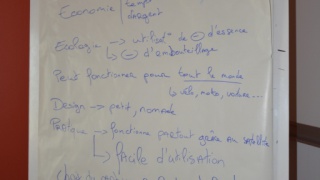 Economie | temps
argent
Ecologie → utilisat° de ⊖ d'essence
↳ ⊖ d'embouteillage
Peut fonctionner pour tout le monde
↳ vélo, motos, voiture...
Design → petit, nomade
Pratique → fonctionne partout grâce au satellite
↳ facile d'utilisation